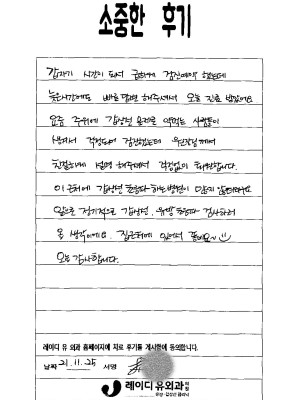 소중한 후기
갑자기 시간이 되서 급하게 검진예약 했는데
늦은시간에도 빠르 답변 해주셔서 오늘 진료 받았어요
요즘 주위에 갑상선 문제로 약먹는 사람들이
많아서 걱정되어 검진했는데 유원장님께서
친절하게 설명 해주셔서 걱정없이 돌아갑니다.
이 근처에 갑상선 초음파 하는병원이 많지 않더라구요
앞으로 정기적으로 갑상선, 유방 초음파 검사하러
올 생각이에요. 집근처에 있어서 좋네요~
오늘 감사합니다.
레이디 유 외과 홈페이지에 치료 후기를 게시함에 동의합니다.
날짜 21. 11. 25 서명
레이디유외과의원
유방·갑상선 클리닉